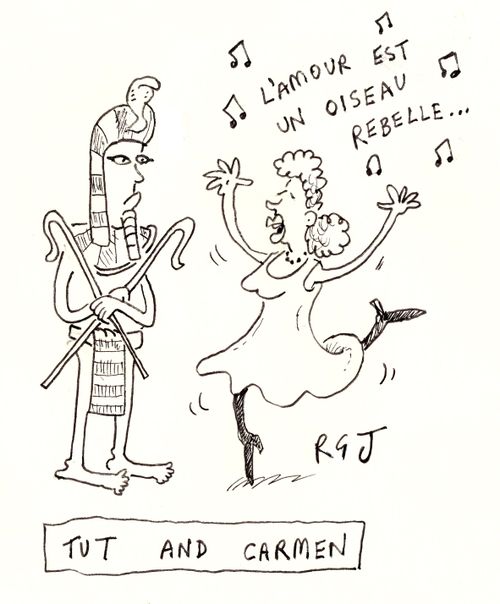 L'AMOUR EST
UN OISEAU
REBELLE...
RGJ
TUT AND CARMEN